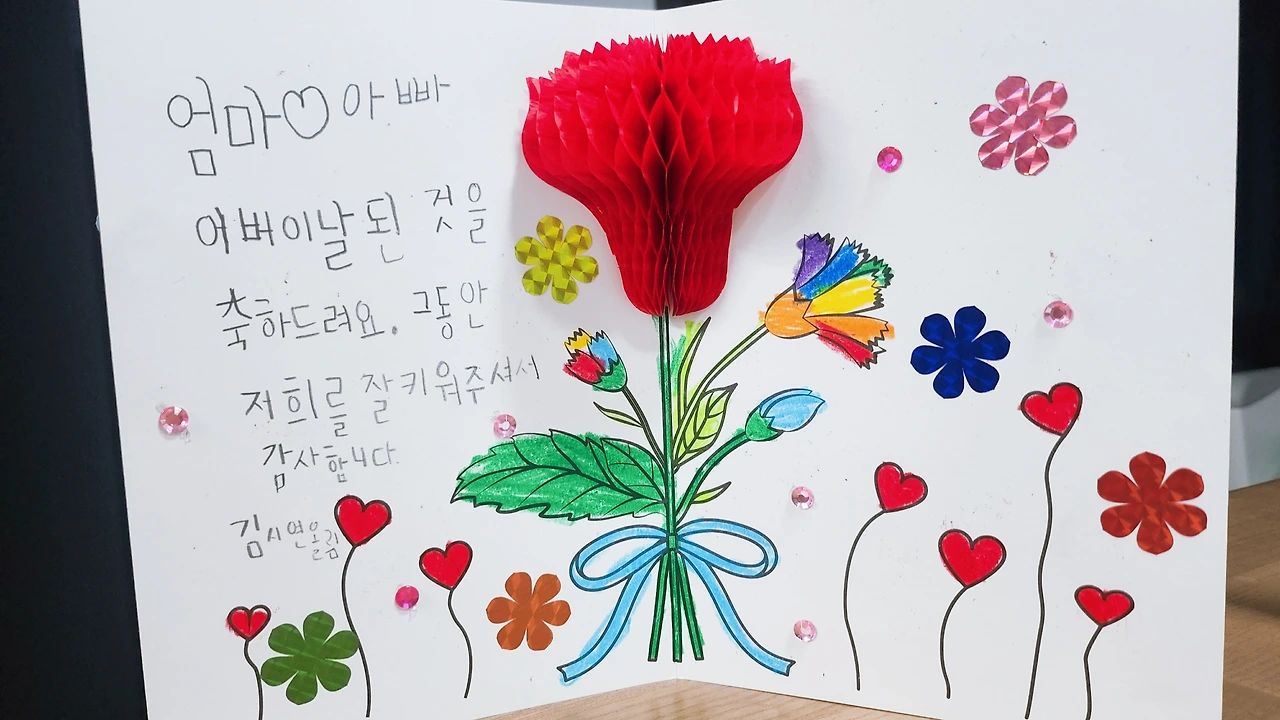 엄마♡아빠
어버이날 된 것을
축하드려요. 그동안
저희를 잘 키워주셔서
감사합니다.
김시연올림